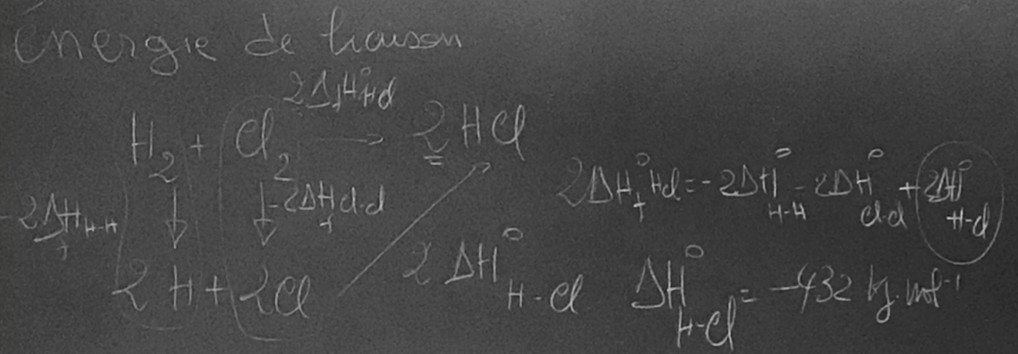 énergie de liaison
2ΔfH°HCl
H₂ + Cl₂ → 2HCl
-2ΔfH H-H
-2ΔfH Cl-Cl
2ΔHf°HCl = -2ΔH°H-H - 2ΔH°Cl-Cl + 2ΔH°H-Cl
2H + 2Cl
2ΔH°H-Cl
ΔH°H-Cl = -432 kJ.mol⁻¹